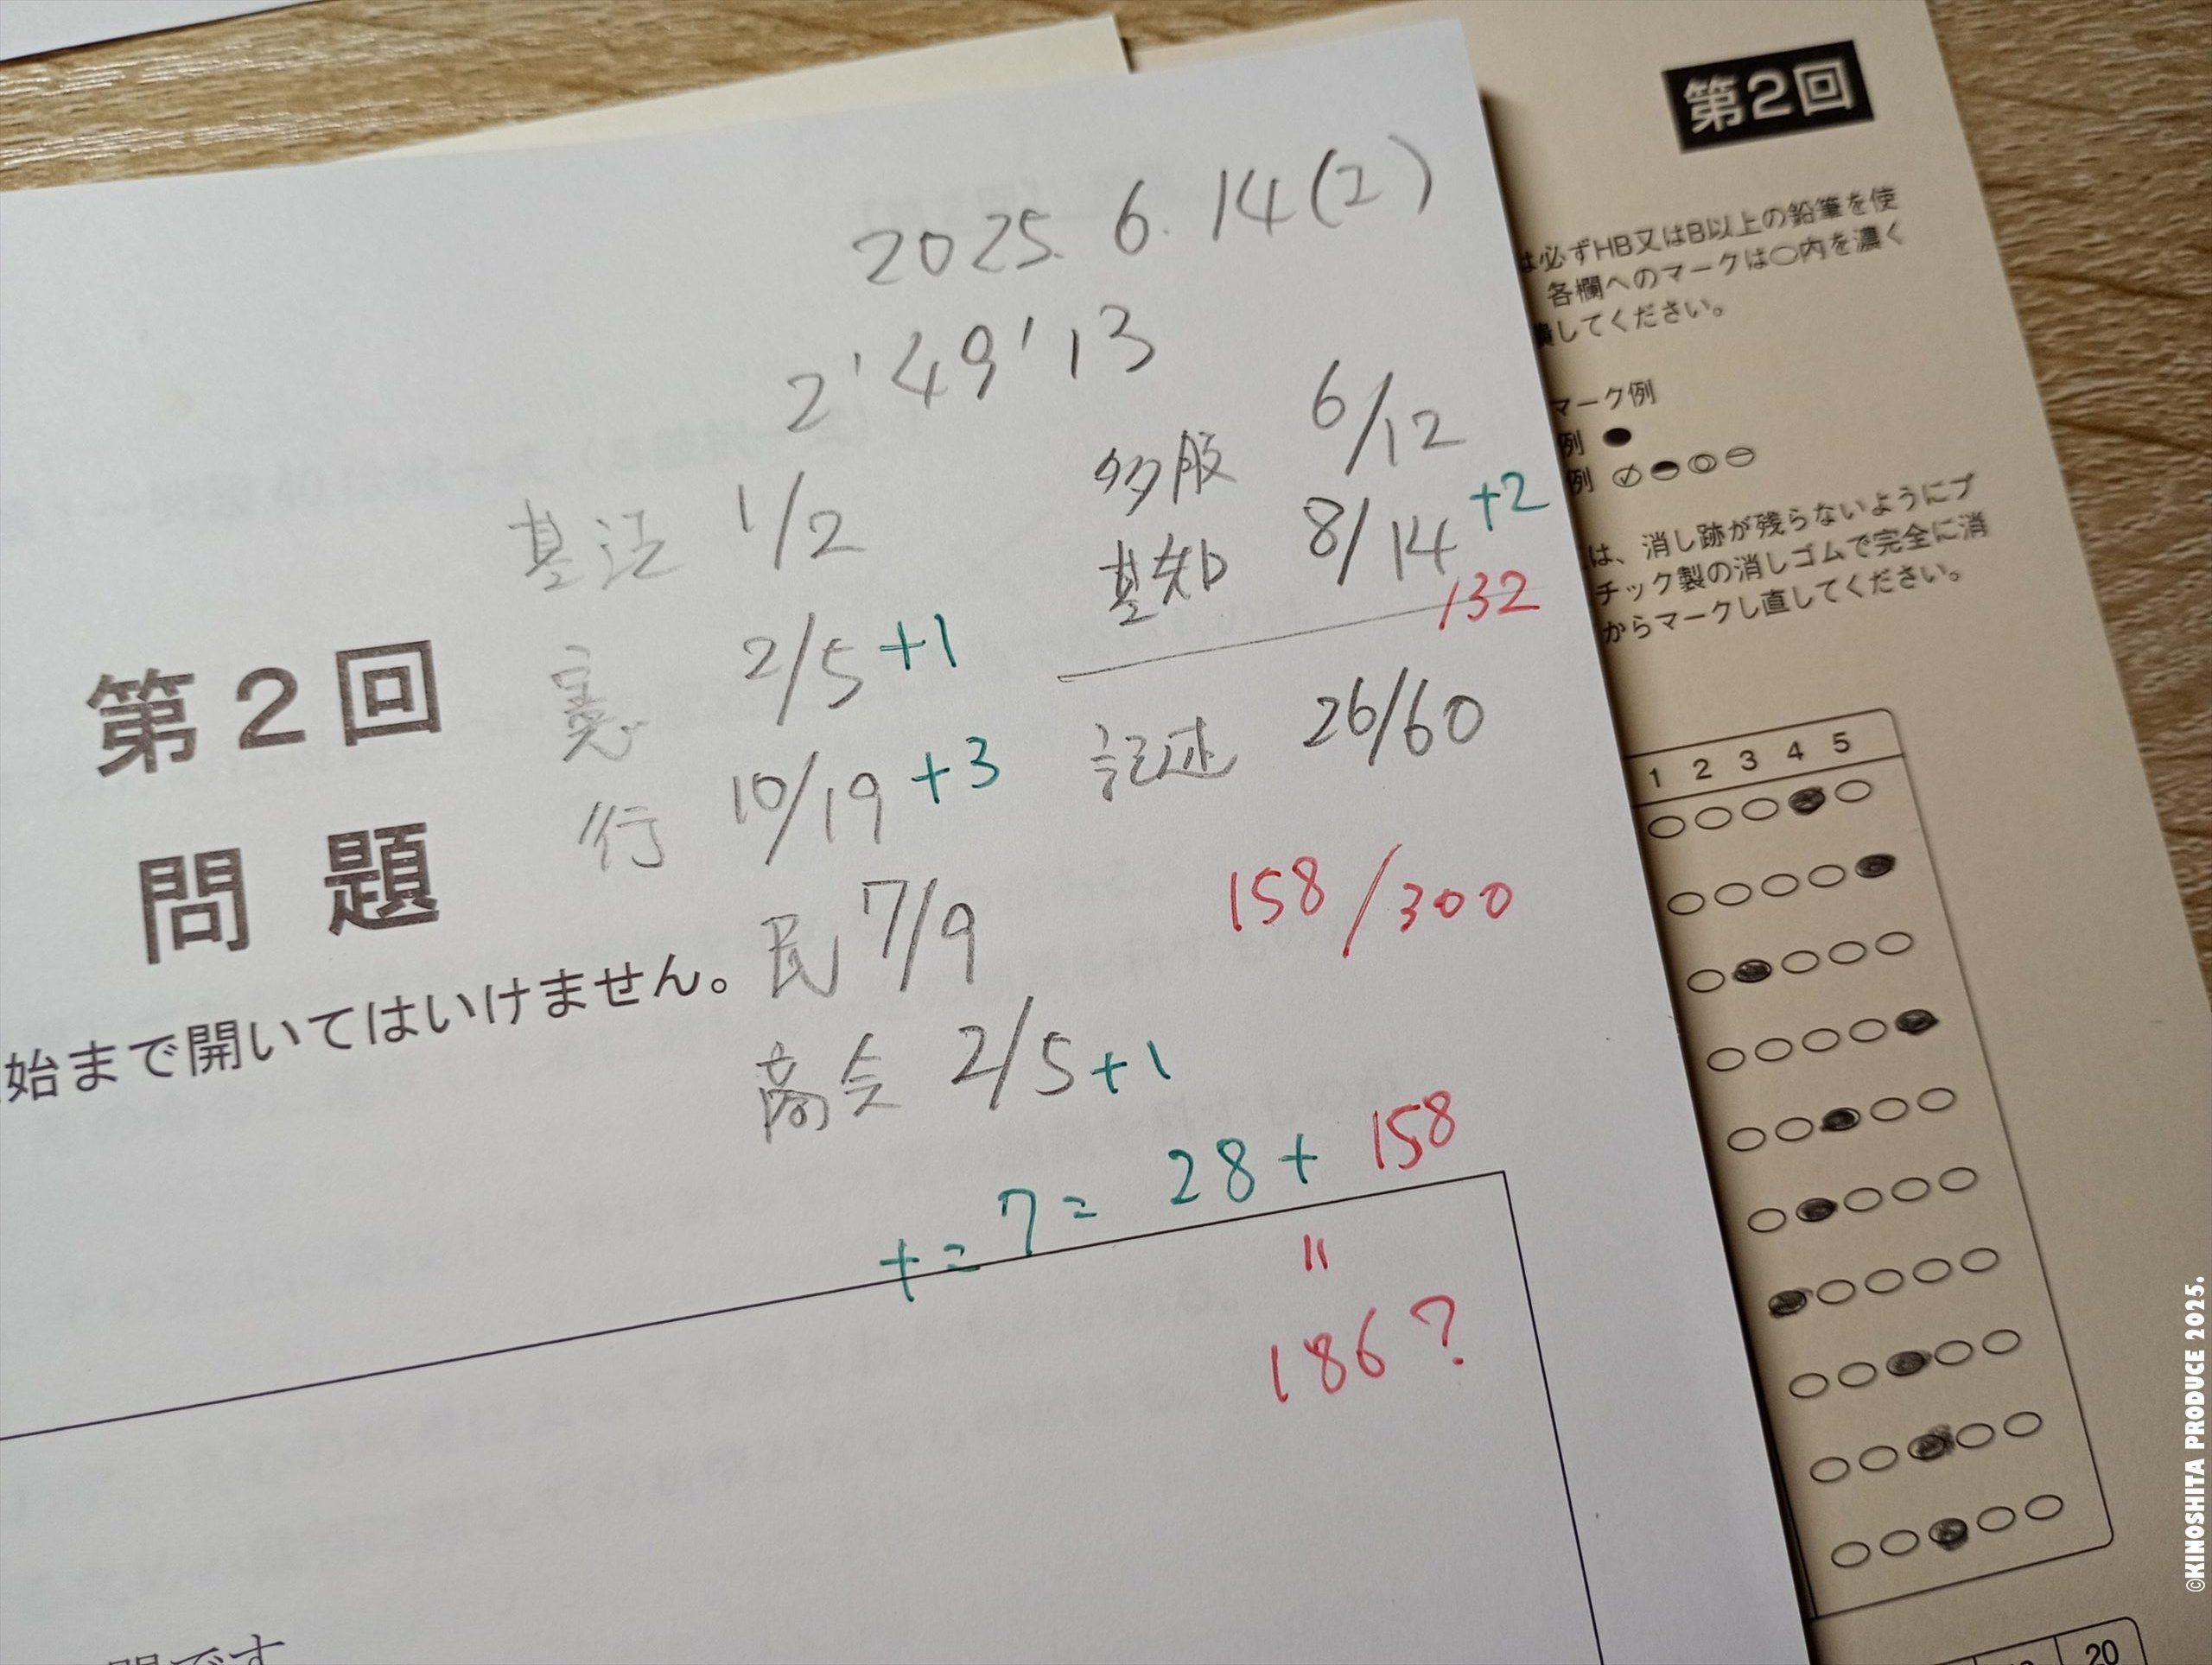 第2回
2025. 6. 14(2)
2'49'13
基法 1/2
憲 2/5 +1
行 10/19 +3
民 7/9
商会 2/5 +1
多肢 6/12
基知 8/14 +2
132
記述 26/60
158/300
+= 7= 28+ 158
=
186?
第2回
問題
始まで開いてはいけません。
問です
は必ずHB又はB以上の鉛筆を使
各欄へのマークは○内を濃く
してください。
マーク例
例
例
は、消し跡が残らないようにプ
チック製の消しゴムで完全に消
からマークし直してください。
1 2 3 4 5
20
©KINOSHITA PRODUCE 2025.